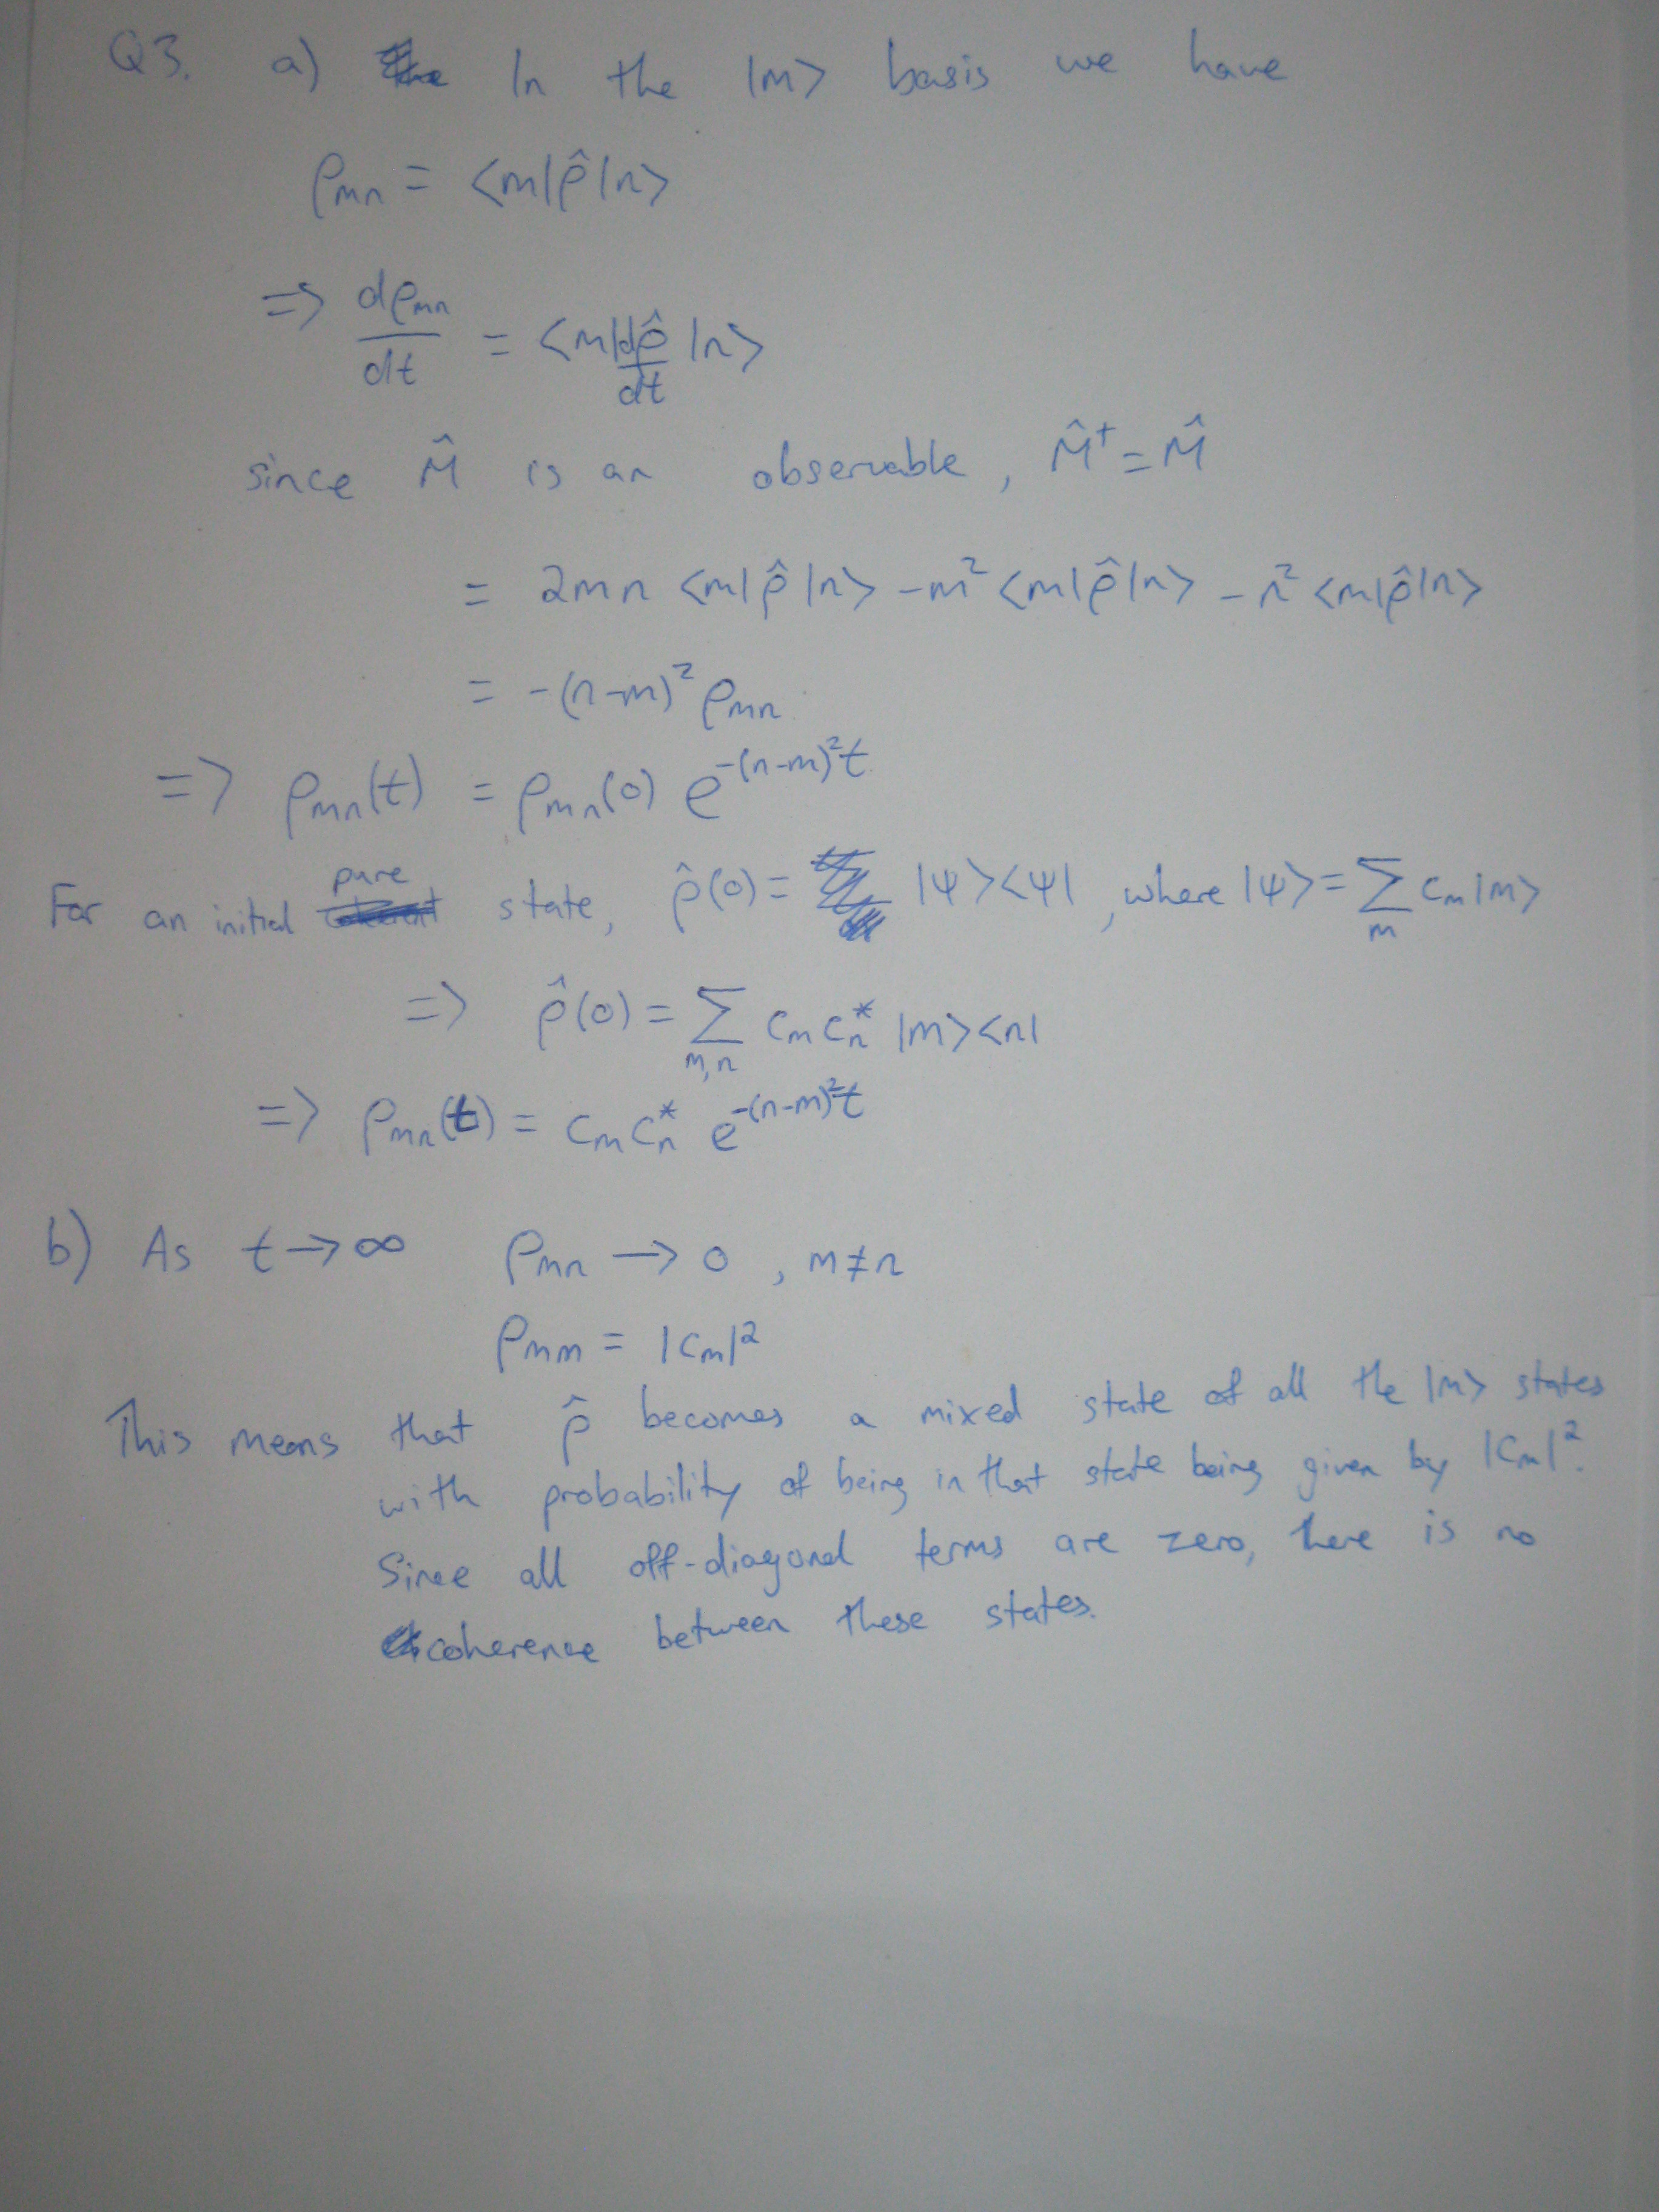 Q3. a) In the |m> basis we have
ρmn = <m|ρ̂|n>
=> dρmn/dt = <m|dρ̂/dt|n>
since M̂ is an observable, M̂† = M̂
= 2mn <m|ρ̂|n> - m² <m|ρ̂|n> - n² <m|ρ̂|n>
= -(n-m)² ρmn
=> ρmn(t) = ρmn(0) e^-(n-m)²t
For an initial pure state, ρ̂(0) = |ψ><ψ|, where |ψ> = Σm cm|m>
=> ρ̂(0) = Σm,n cm cn* |m><n|
=> ρmn(t) = cm cn* e^-(n-m)²t
b) As t → ∞ ρmn → 0, m ≠ n
ρmm = |cm|²
This means that ρ̂ becomes a mixed state of all the |m> states
with probability of being in that state being given by |cm|².
Since all off-diagonal terms are zero, there is no
coherence between these states.